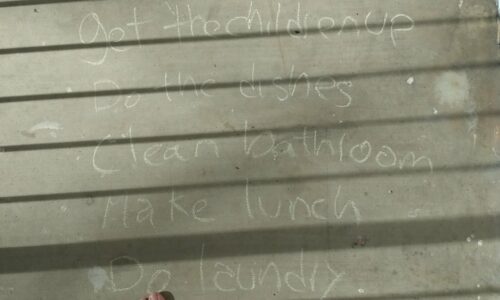 Get the children up
Do the dishes
Clean bathroom
Make lunch
Do laundry